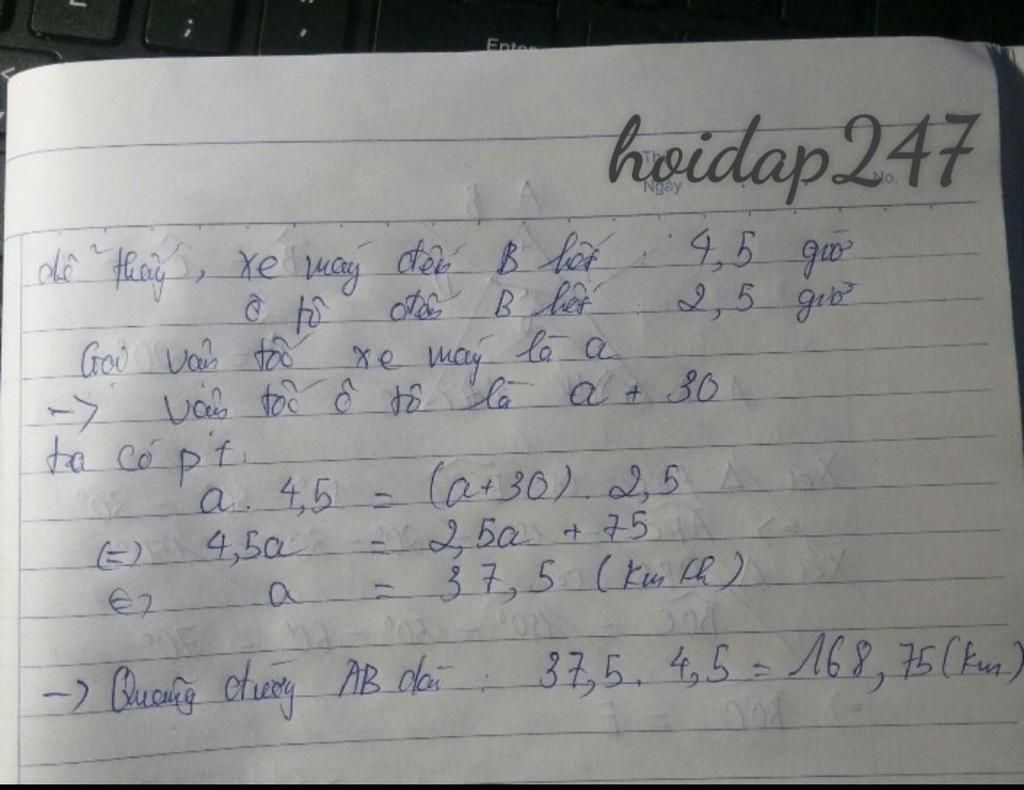 Enter
hoidap247
Ngày No.
dễ thấy, xe máy đến B hết : 4,5 giờ
ô tô đến B hết : 2,5 giờ
Gọi vận tốc xe máy là a
-> vận tốc ô tô là a + 30
ta có pt.
a. 4,5 = (a+30). 2,5
(=) 4,5a = 2,5a + 75
(=) a = 37,5 (km/h)
-> Quãng đường AB dài : 37,5. 4,5 = 168,75 (km)